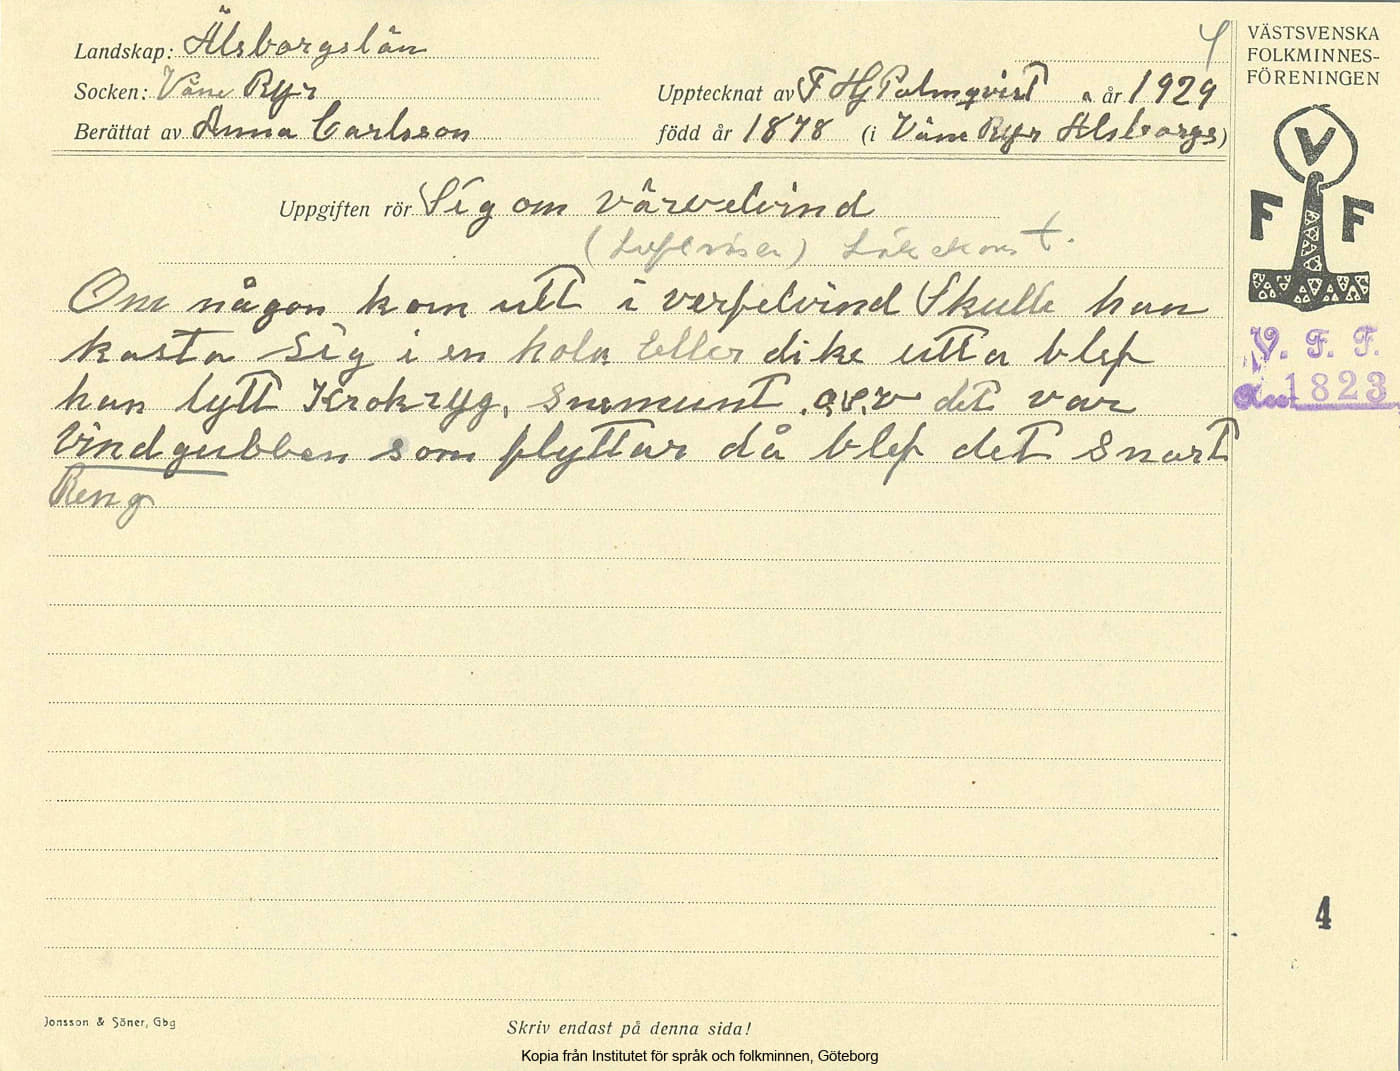 4
VÄSTSVENSKA
FOLKMINNES-
FÖRENINGEN
Landskap: Älsborgslän
Socken: Väne Ryr
Upptecknat av F Hj Palmqvist år 1929
Berättat av Anna Carlsson
född år 1878 (i Väne Ryr Älsborgs)
V
F F
Uppgiften rör Sig om värvelvind
Läkekonst.
V. F. F.
1823
Om någon kom utt i verfelvind Skulle han
kasta Sig i en hola eller dike utta blef
han lytt Krokryg, Snemunt o,s,v det var
Vindgubben som flyttar då blef det Snart
Reng
4
Jonsson & Söner, Gbg
Skriv endast på denna sida!
Kopia från Institutet för språk och folkminnen, Göteborg